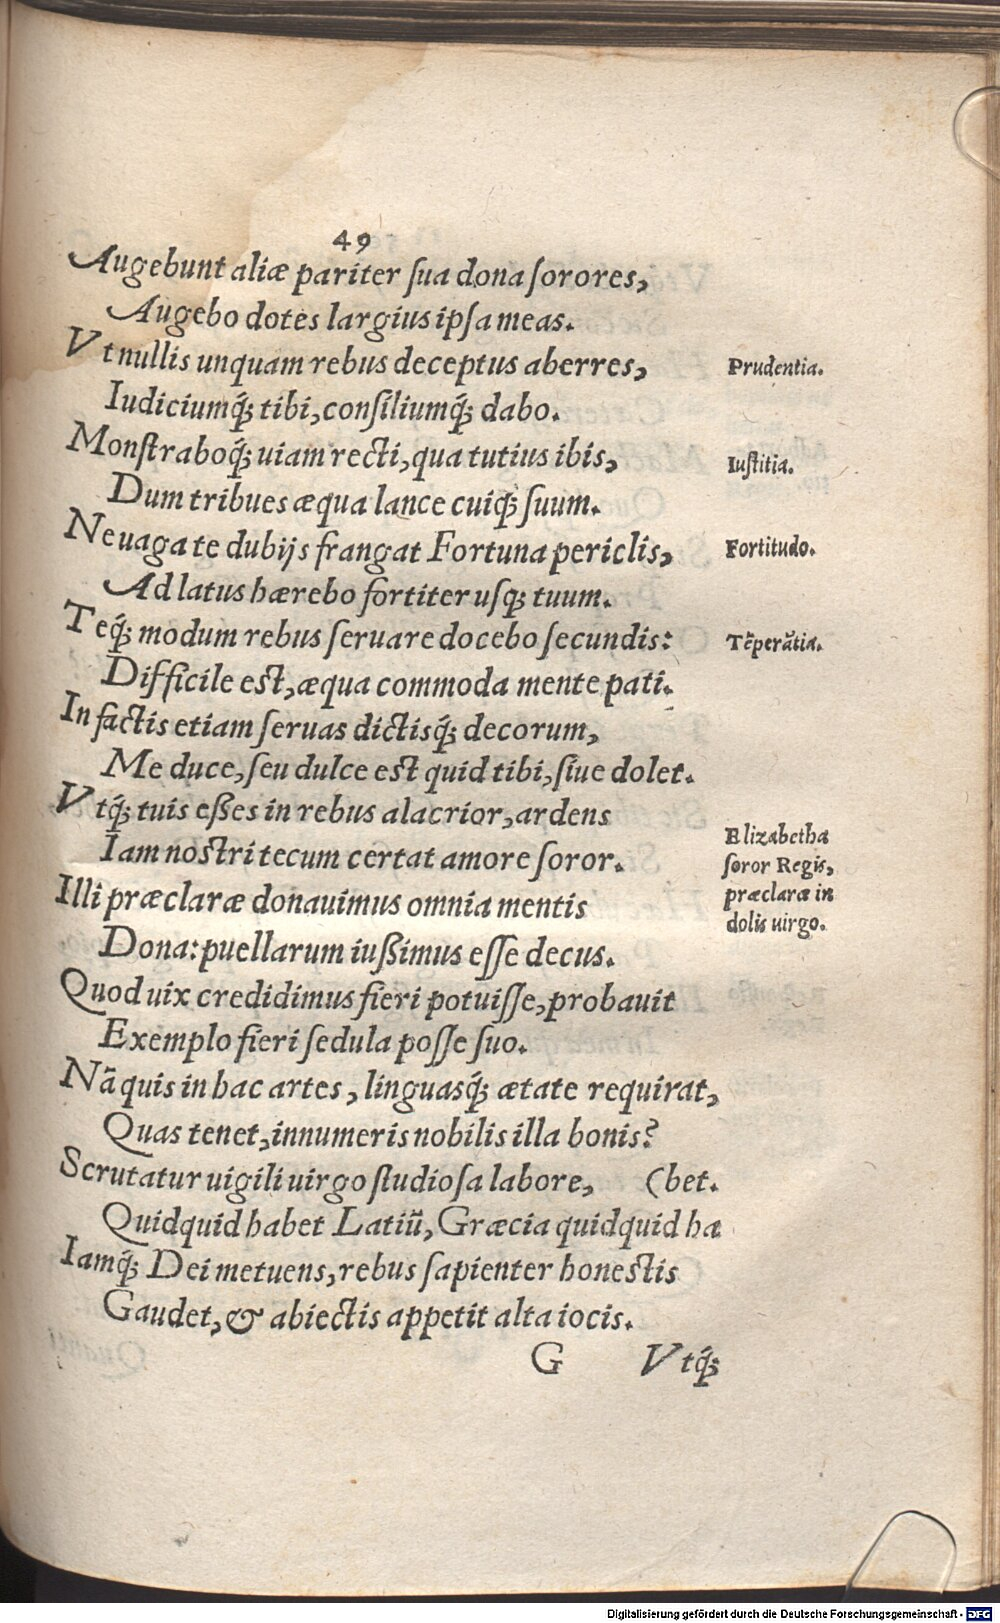 49
Augebunt aliæ pariter ſua dona ſorores,
Augebo dotes largius ipſa meas.
Vt nullis unquam rebus deceptus aberres,
Prudentia.
Iudiciumq́; tibi, conſiliumq́; dabo.
Monſtraboq́; uiam recti, qua tutius ibis,
Iuſtitia.
Dum tribues æqua lance cuiq́; ſuum.
Ne uaga te dubijs frangat Fortuna periclis,
Fortitudo.
Ad latus hærebo fortiter uſq; tuum.
Teq́; modum rebus ſeruare docebo ſecundis:
Tẽperãtia.
Difficile est, æqua commoda mente pati.
In factis etiam ſeruas dictisq́; decorum,
Me duce, ſeu dulce est quid tibi, ſiue dolet.
Vtq́; tuis eßes in rebus alacrior, ardens
Iam nostri tecum certat amore ſoror.
Elizabetha
ſoror Regis,
præclaræ in
dolis uirgo.
Illi præclaræ donauimus omnia mentis
Dona: puellarum iußimus eſſe decus.
Quod uix credidimus fieri potuiſſe, probauit
Exemplo fieri ſedula poſſe ſuo.
Nã quis in hac artes, linguasq́; ætate requirat,
Quas tenet, innumeris nobilis illa bonis?
Scrutatur uigili uirgo ſtudioſa labore, (bet.
Quidquid habet Latiũ, Græcia quidquid ha
Iamq́; Dei metuens, rebus ſapienter honestis
Gaudet, & abiectis appetit alta iocis.
G Vtq́;
Digitalisierung gefördert durch die Deutsche Forschungsgemeinschaft - DFG